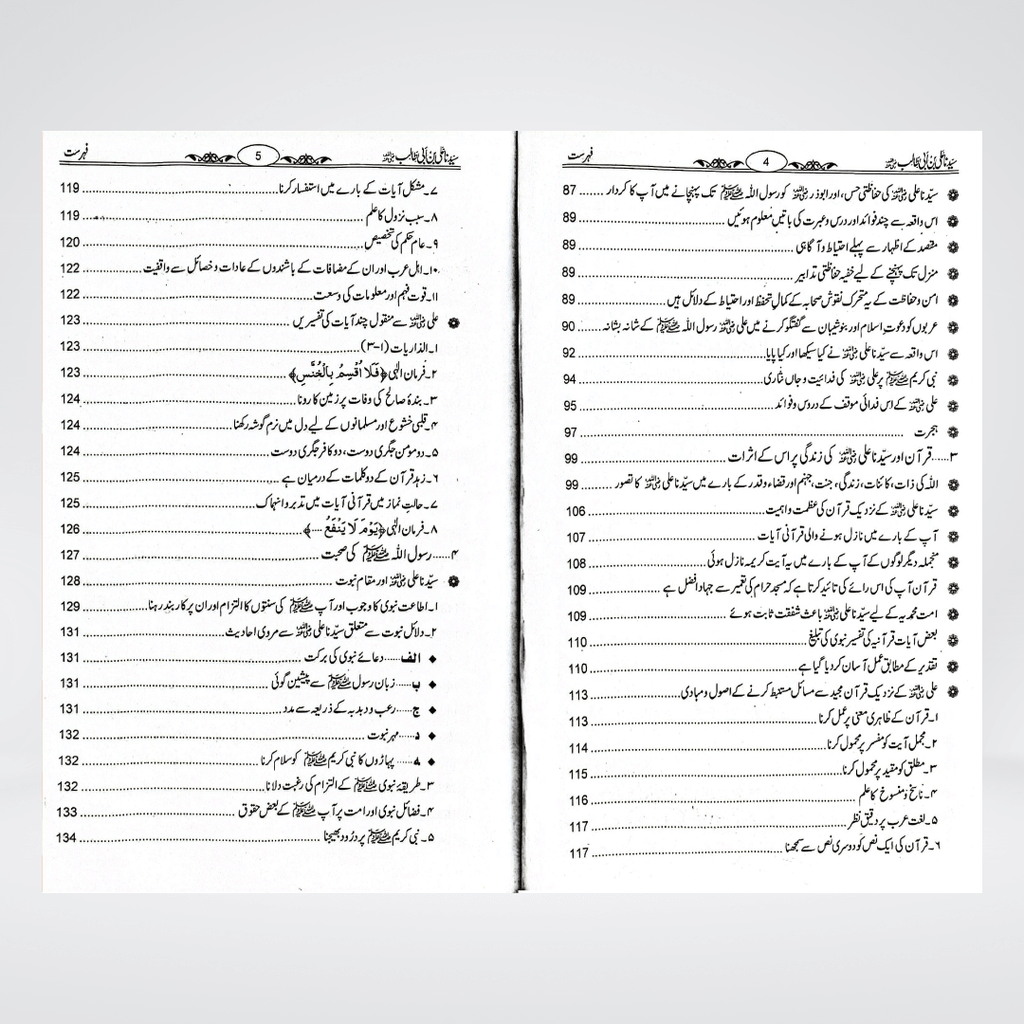 سیّدنا علی بن ابی طالب رضی اللہ عنہ 4 فہرست
سیّدنا علی رضی اللہ عنہ کی حفاظتی حس، اور ابوذر رضی اللہ عنہ کو رسول اللہ ﷺ تک پہنچانے میں آپ کا کردار ...... 87
اس واقعہ سے چند فوائد اور درس وعبرت کی باتیں معلوم ہوئیں ...... 89
مقصد کے اظہار سے پہلے احتیاط و آگاہی ...... 89
منزل تک پہنچنے کے لیے خفیہ حفاظتی تدابیر ...... 89
امن وحفاظت کے یہ متحرک نقوش صحابہ کے کمالِ تحفظ اور احتیاط کے دلائل ہیں ...... 89
عربوں کو دعوتِ اسلام اور بنو شیبان سے گفتگو کرنے میں علی رضی اللہ عنہ رسول اللہ ﷺ کے شانہ بشانہ ...... 90
اس واقعہ سے سیّدنا علی رضی اللہ عنہ نے کیا سیکھا اور کیا پایا ...... 92
نبی کریم ﷺ پر علی رضی اللہ عنہ کی فدائیت و جاں نثاری ...... 94
علی رضی اللہ عنہ کے اس فدائی موقف کے دروس وفوائد ...... 95
ہجرت ...... 97
۳...... قرآن اور سیّدنا علی رضی اللہ عنہ کی زندگی پر اس کے اثرات ...... 99
اللہ کی ذات، کائنات، زندگی، جنت، جہنم اور قضاء وقدر کے بارے میں سیّدنا علی رضی اللہ عنہ کا تصور ...... 99
سیّدنا علی رضی اللہ عنہ کے نزدیک قرآن کی عظمت واہمیت ...... 106
آپ کے بارے میں نازل ہونے والی قرآنی آیات ...... 107
منجملہ دیگر لوگوں کے آپ کے بارے میں یہ آیت کریمہ نازل ہوئی ...... 108
قرآن آپ کی اس رائے کی تائید کرتا ہے کہ مسجد حرام کی تعمیر سے جہاد افضل ہے ...... 109
امت محمدیہ کے لیے سیّدنا علی رضی اللہ عنہ باعث شفقت ثابت ہوئے ...... 109
بعض آیات قرآنیہ کی تفسیر نبوی کی تبلیغ ...... 110
تقدیر کے مطابق عمل آسان کردیا گیا ہے ...... 110
علی رضی اللہ عنہ کے نزدیک قرآن مجید سے مسائل مستنبط کرنے کے اصول ومبادی ...... 113
۱۔ قرآن کے ظاہری معنی پر عمل کرنا ...... 113
۲۔ مجمل آیت کو مفسر پر محمول کرنا ...... 114
۳۔ مطلق کو مقید پر محمول کرنا ...... 115
۴۔ ناسخ ومنسوخ کا علم ...... 116
۵۔ لغت عرب پر دقیق نظر ...... 117
۶۔ قرآن کی ایک نص کو دوسری نص سے سمجھنا ...... 117
سیّدنا علی بن ابی طالب رضی اللہ عنہ 5 فہرست
۷۔ مشکل آیات کے بارے میں استفسار کرنا ...... 119
۸۔ سبب نزول کا علم ...... 119
۹۔ عام حکم کی تخصیص ...... 120
۱۰۔ اہل عرب اور ان کے مضافات کے باشندوں کے عادات وخصائل سے واقفیت ...... 122
۱۱۔ قوت فہم اور معلومات کی وسعت ...... 122
علی رضی اللہ عنہ سے منقول چند آیات کی تفسیریں ...... 123
۱۔ الذاریات (۱-۳) ...... 123
۲۔ فرمان الٰہی ﴿فَلَا أُقْسِمُ بِالْخُنَّسِ﴾ ...... 123
۳۔ بندۂ صالح کی وفات پر زمین کا رونا ...... 124
۴۔ قلبی خشوع اور مسلمانوں کے لیے دل میں نرم گوشہ رکھنا ...... 124
۵۔ دو مومن جگری دوست، دو کافر جگری دوست ...... 124
۶۔ زہد قرآن کے دو کلمات کے درمیان ہے ...... 125
۷۔ حالتِ نماز میں قرآنی آیات میں تدبر و انہماک ...... 125
۸۔ فرمان الٰہی ﴿يَوْمَ لَا يَنْفَعُ ....﴾ ...... 126
۴...... رسول اللہ ﷺ کی صحبت ...... 127
سیّدنا علی رضی اللہ عنہ اور مقام نبوت ...... 128
۱۔ اطاعت نبوی کا وجوب اور آپ ﷺ کی سنتوں کا التزام اور ان پر کاربند رہنا ...... 129
۲۔ دلائل نبوت سے متعلق سیّدنا علی رضی اللہ عنہ سے مروی احادیث ...... 131
الف...... دعائے نبوی کی برکت ...... 131
ب...... زبان رسول ﷺ سے پیشین گوئی ...... 131
ج...... رعب و دبدبہ کے ذریعہ سے مدد ...... 131
د...... مہر نبوت ...... 132
ہ...... پہاڑوں کا نبی کریم ﷺ کو سلام کرنا ...... 132
۳۔ طریقۂ نبوی ﷺ کے التزام کی رغبت دلانا ...... 132
۴۔ فضائل نبوی اور امت پر آپ ﷺ کے بعض حقوق ...... 133
۵۔ نبی کریم ﷺ پر درُود بھیجنا ...... 134